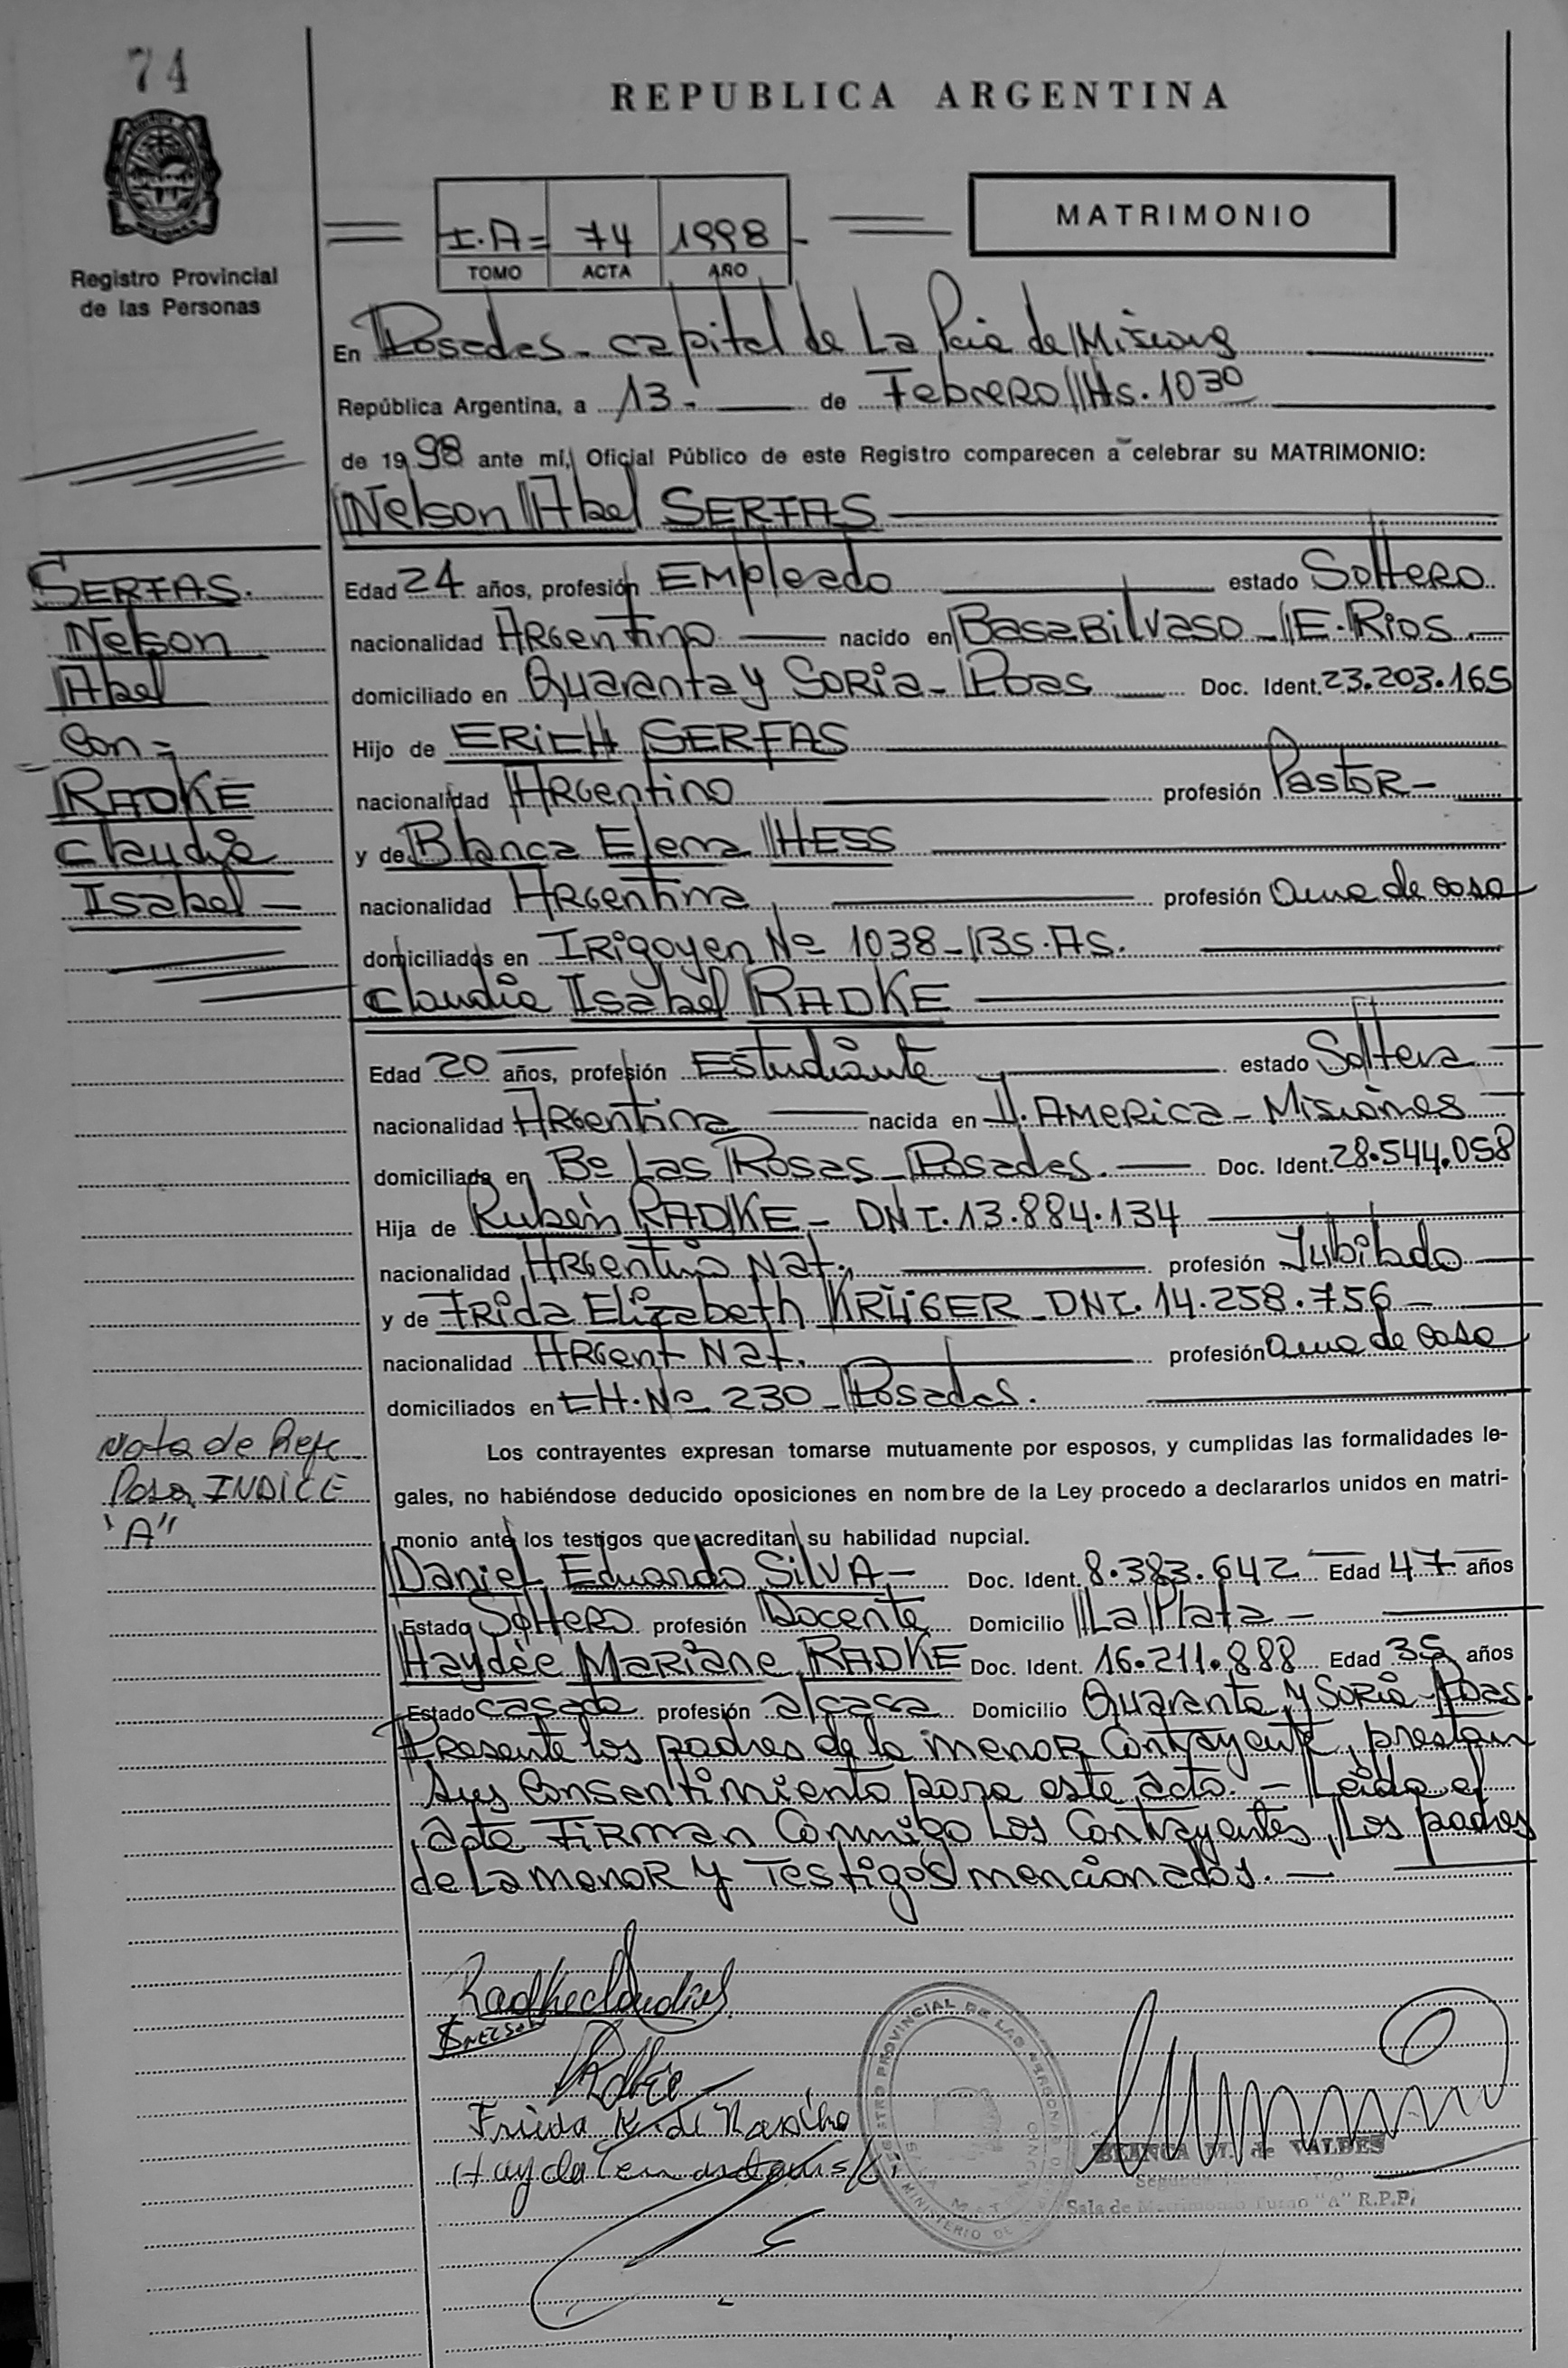 74
REPUBLICA ARGENTINA
I.A= 74 1998
TOMO ACTA AÑO
MATRIMONIO
Registro Provincial
de las Personas
En Posadas - capital de La Pcia de Misiones
República Argentina, a 13- de Febrero Hs. 1030
de 1998 ante mí, Oficial Público de este Registro comparecen a celebrar su MATRIMONIO:
Nelson Abel SERFAS
SERFAS.
Nelson
Abel
con=
RADKE
Claudia
Isabel -
Edad 24 años, profesión Empleado estado Soltero
nacionalidad Argentino nacido en Basabilvaso - E. Rios -
domiciliado en Quaranta y Soria - Pdas Doc. Ident. 23.203.165
Hijo de ERICH SERFAS
nacionalidad Argentino profesión Pastor -
y de Blanca Elena HESS
nacionalidad Argentina profesión ama de casa
domiciliados en Irigoyen Nº 1038 - Bs. As.
Claudia Isabel RADKE
Edad 20 años, profesión Estudiante estado Soltera
nacionalidad Argentina nacida en J. America - Misiones
domiciliada en Bº Las Rosas - Posadas. Doc. Ident. 28.544.058
Hija de Rubén RADKE - DNI. 13.884.134
nacionalidad Argentino Nat. profesión Jubilado
y de Frida Elizabeth KRÜGER - DNI. 14.258.756 -
nacionalidad Argent Nat. profesión ama de casa
domiciliados en CH. Nº 230 - Posadas.
Nota de Refe
Para INDICE
"A"
Los contrayentes expresan tomarse mutuamente por esposos, y cumplidas las formalidades le-
gales, no habiéndose deducido oposiciones en nombre de la Ley procedo a declararlos unidos en matri-
monio ante los testigos que acreditan su habilidad nupcial.
Daniel Eduardo SILVA - Doc. Ident. 8.383.642 Edad 47 años
Estado Soltero profesión Docente Domicilio La Plata -
Haydée Mariane RADKE Doc. Ident. 16.211.888 Edad 35 años
Estado casada profesión a/casa Domicilio Quaranta y Soria - Pdas.
Presente los padres de la menor Contrayente, prestan
sus Consentimiento para este acto. - Leida el
acta Firman Conmigo Los Contrayentes, Los padres
de La menor y Testigos mencionados. -
Radke Claudia
S NELSON
Radke
Frida K. de Radke
REGISTRO PROVINCIAL DE LAS PERSONAS
MINISTERIO DE
BLANCA M. de VALDES
Sala de Matrimonio Turno "A" R.P.P.